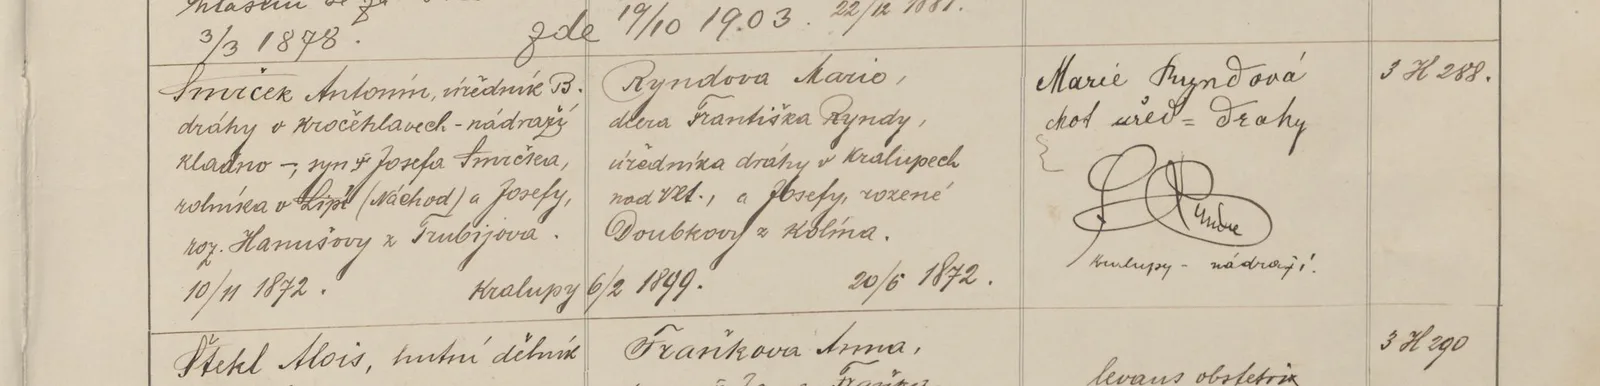 3/3 1878.
zde 19/10 1903. 22/12 1881.
Smrček Antonín, úředník B.
dráhy v Kročehlavech - nádraží
Kladno -, syn Josefa Smrčka,
rolníka v Lipí (Náchod) a Josefy,
roz. Hanušovy z Trubijova.
10/11 1872.
Kralupy 6/2 1899.
Ryndova Marie,
dcera Františka Ryndy,
úředníka dráhy v Kralupech
nad Vlt., a Josefy, rozené
Doubkovy z Kolína.
20/5 1872.
Marie Ryndová
choť úřed= drahy
Kralupy - nádraží.
3 H 288.
Štekl Alois, hutní dělník
Fraňkova Anna,
levans obstetrix
3 H 290